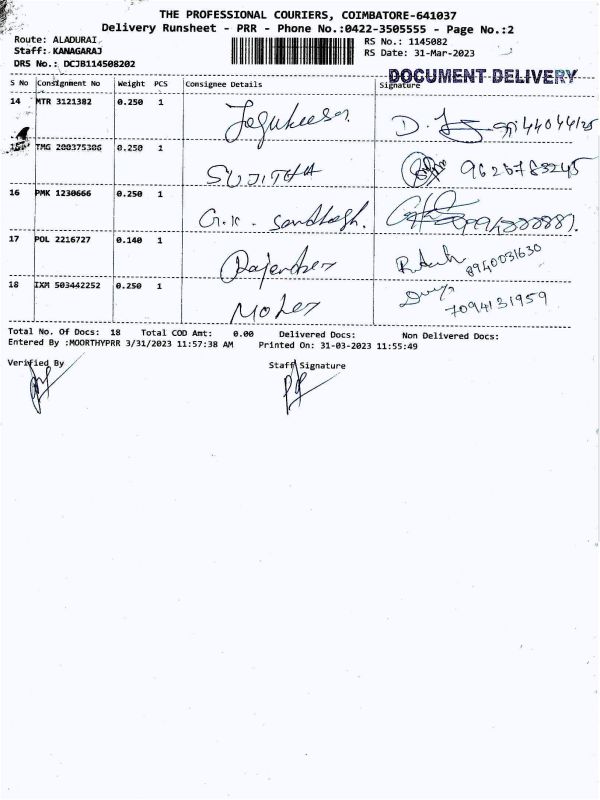 THE PROFESSIONAL COURIERS, COIMBATORE-641037
Delivery Runsheet - PRR - Phone No.:0422-3505555 - Page No.:2
Route: ALADURAI
RS No.: 1145082
Staff: KANAGARAJ
RS Date: 31-Mar-2023
DRS No.: DCJB114508202
DOCUMENT DELIVERY
S No Consignment No Weight PCS Consignee Details Signature
14 MTR 3121382 0.250 1
15 TMG 200375306 0.250 1
SUJITHA
16 PMK 1230666 0.250 1
G.K. Santhosh.
17 POL 2216727 0.140 1
Rajendren 8940031630
18 IXM 503442252 0.250 1
7094131959
Total No. Of Docs: 18 Total COD Amt: 0.00 Delivered Docs: Non Delivered Docs:
Entered By :MOORTHYPRR 3/31/2023 11:57:38 AM Printed On: 31-03-2023 11:55:49
Verified By Staff Signature